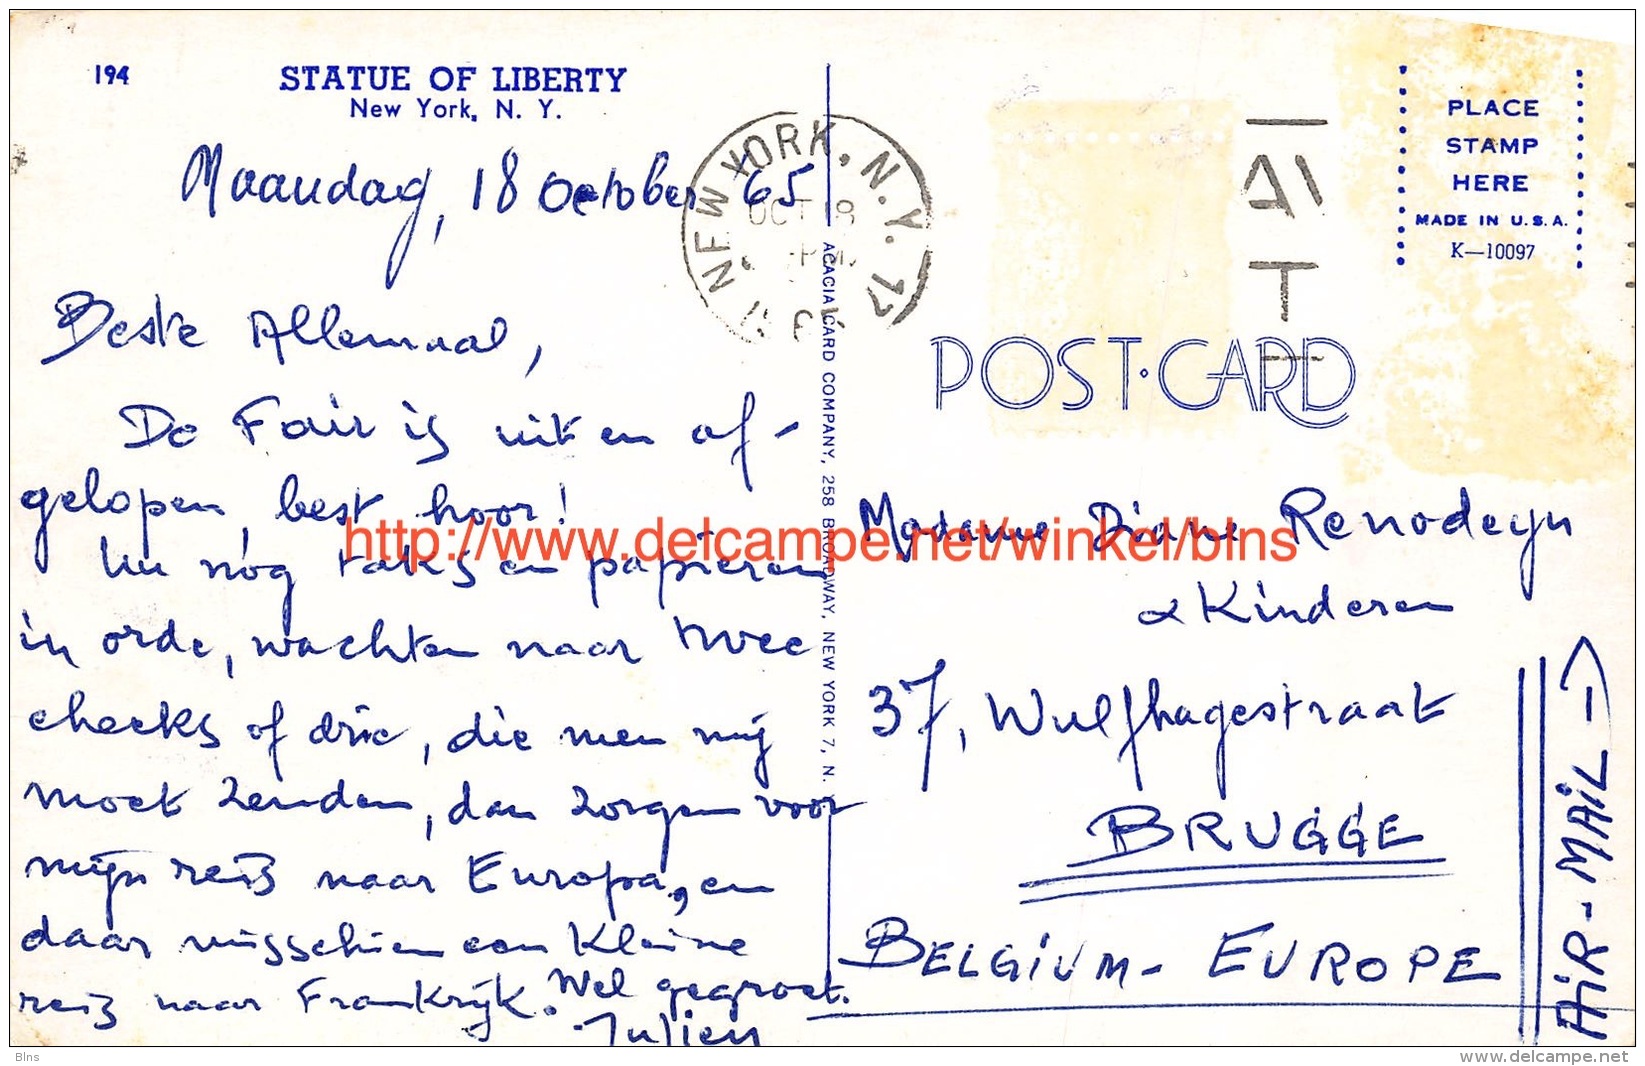 194
STATUE OF LIBERTY
New York, N. Y.
Maandag, 18 October 65
Beste Allemaal,
De Fair is uit en af-
gelopen, best hoor!
Nu nog taks en papieren
in orde, wachten naar twee
checks of drie, die men mij
moet zenden, dan zorgen voor
mijn reis naar Europa, en
daar misschien een kleine
reis naar Frankrijk. Wel gegroet.
Julien
NEW YORK, N.Y. 17
OCT 18
PM
ACACIA CARD COMPANY, 258 BROADWAY, NEW YORK 7, N.
PLACE
STAMP
HERE
MADE IN U.S.A.
K—10097
POST·CARD
Madame Diane Renodeyn
& Kinderen
37, Wulfhagestraat
BRUGGE
BELGIUM - EUROPE
AIR-MAIL →
http://www.delcampe.net/winkel/blns
Blns
www.delcampe.net